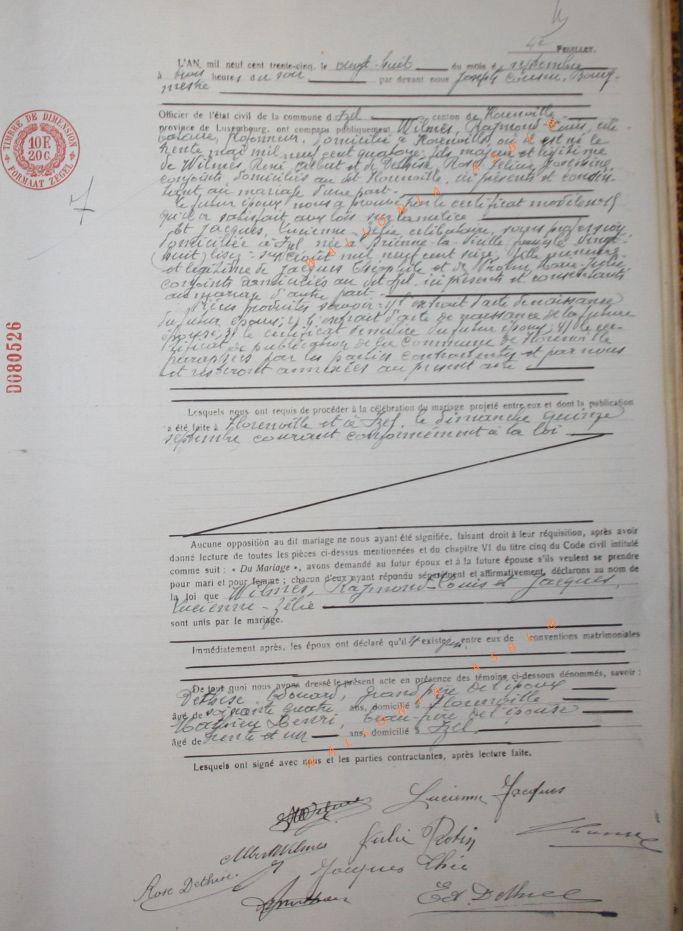 4e FEUILLET.
L'AN, mil neuf cent trente-cinq, le vingt-huit du mois de septembre
à trois heures du soir par devant nous Joseph Bourg-
mestre
Officier de l'état civil de la commune d'Izel canton de Florenville
province de Luxembourg, ont comparu publiquement Wilmès, Raymond-Louis, céli-
bataire, domicilié à Florenville où il est né le
trente mai mil neuf cent quatorze, fils majeur et légitime
de Wilmès, René Albert et de Dethise, Rose Joséphine
conjoints domiciliés au dit Florenville, ici présents et consen-
tant au mariage d'une part.
Le futur époux nous a prouvé par le certificat modèle
qu'il a satisfait aux lois sur la milice
Et Jacques, Lucienne-Zélie célibataire, sans profession
domiciliée à Izel née à Brienne-la-Vieille
août mil neuf cent seize, fille mineure
et légitime de Jacques Théophile et de Robin Marie-Julie
conjoints domiciliés au dit Izel, ici présents et consentants
au mariage d'autre part.
Pièces produites savoir: 1) l'extrait d'acte de naissance
du futur époux; 2) l'extrait d'acte de naissance de la future
épouse; 3) le certificat de milice du futur époux; 4) le cer-
tificat de publication de la commune de Florenville
paraphées par les parties contractantes et par nous
et resteront annexées au présent acte
Lesquels nous ont requis de procéder à la célébration du mariage projeté entre eux et dont la publication
a été faite à Florenville et à Izel, le dimanche quinze
septembre courant conformément à la loi
Aucune opposition au dit mariage ne nous ayant été signifiée, faisant droit à leur réquisition, après avoir
donné lecture de toutes les pièces ci-dessus mentionnées et du chapitre VI du titre cinq du Code civil intitulé
comme suit : « Du Mariage », avons demandé au futur époux et à la future épouse s'ils veulent se prendre
pour mari et pour femme ; chacun d'eux ayant répondu séparément et affirmativement, déclarons au nom de
la loi que Wilmès, Raymond-Louis et Jacques,
Lucienne-Zélie
sont unis par le mariage.
Immédiatement après, les époux ont déclaré qu'il existe entre eux de conventions matrimoniales
De tout quoi nous avons dressé le présent acte en présence des témoins ci-dessous dénommés, savoir :
Dethise, Edouard, grand-père de l'époux
âgé de soixante quatre ans, domicilié à Florenville
Henri, beau-frère de l'épouse
âgé de trente et un ans, domicilié à Izel
Lesquels ont signé avec nous et les parties contractantes, après lecture faite.
Lucienne Jacques
Albert Wilmès
Julie Robin
Rose Dethise
Jacques
Ed. Dethise
TIMBRE DE DIMENSION
10F.
20C.
FORMAAT ZEGEL
D080526